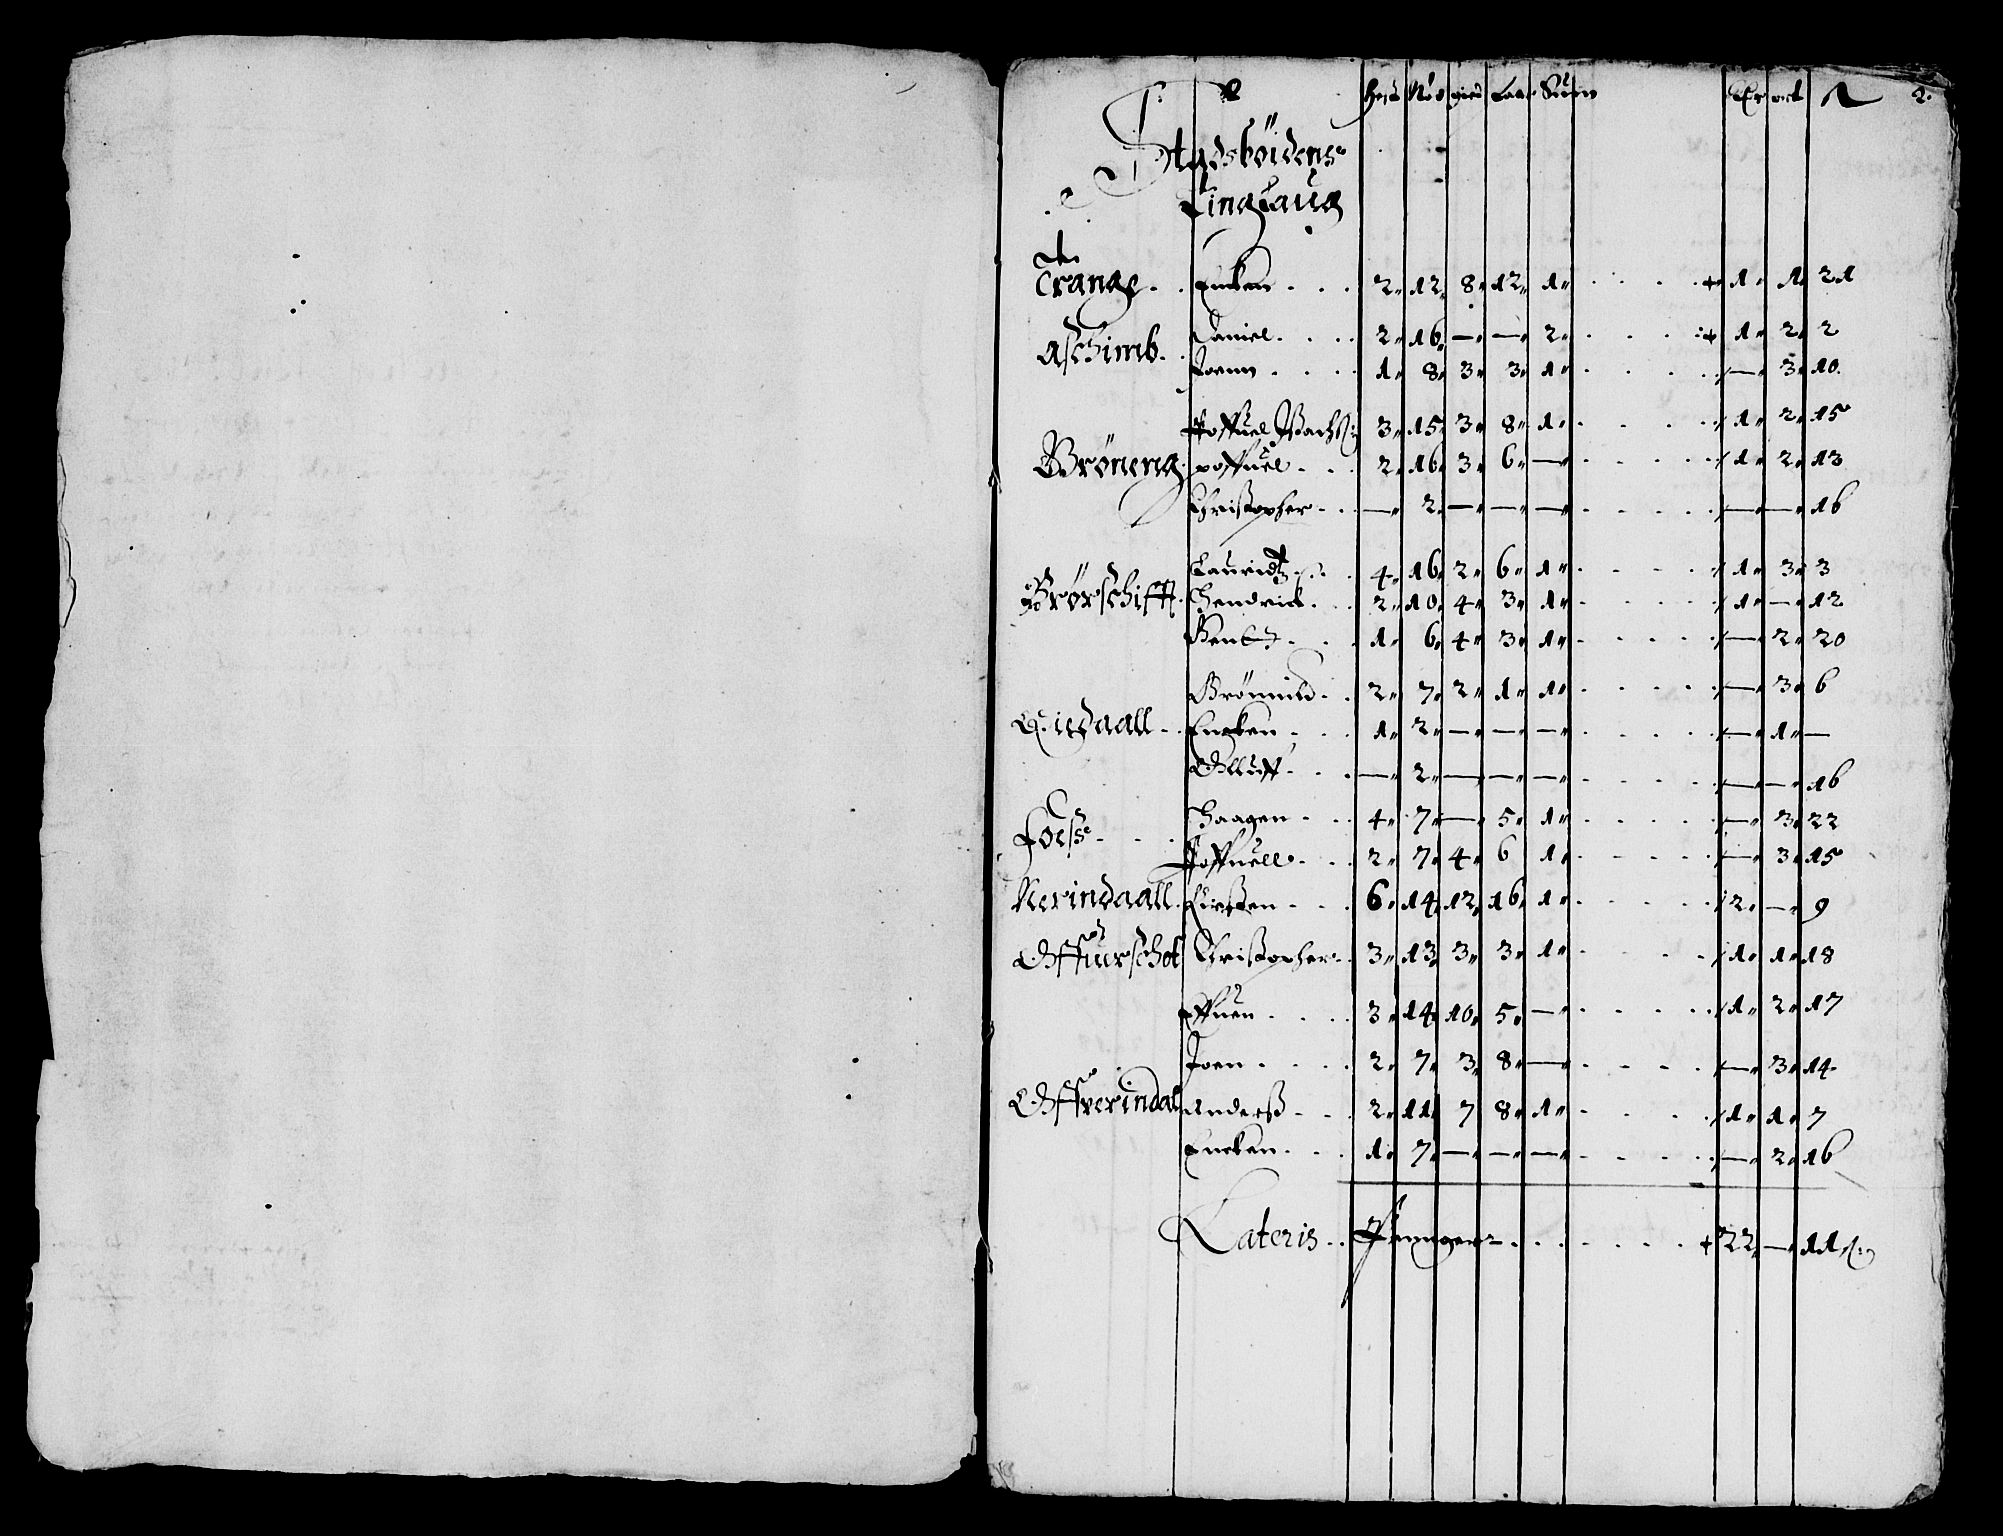 Hest Nöd gied Laar Suin Dr ort ß 2.
Stadsböidens
Tinglaug
Trange. . Encken . . . 2 12 8 12 1 . . . . + 1 1 21
Aschimb. . Daniel. . . . 2 16 — — 2 . . . . + 1 2 2
Joenn . . . . 1 8 3 3 1 . . . . — 3 10
Poffuel 3 15 3 8 1 . . . . 1 2 15
Bröneng. poffuel . . . 2 16 3 6 — . . . . 1 2 13
Christopher . . — 2 — — — . . . . — — 16
Lauridtz . . 4 16 2 6 1 . . . . 1 3 3
Brørschifft. Hendrick. . . 2 10 4 3 1 . . . . 1 — 12
Bendt . . . 1 6 4 3 1 . . . . — 2 20
Brönnild . . 2 7 2 1 1 . . . . — 3 6
daall . . Encken . . . 1 2 — — — . . . . — 1 —
Olluff . . . — 2 — — — . . . . — — 16
Foess . . . Haagen . . . 4 7 — 5 1 . . . . — 3 22
Poffuell . . . 2 7 4 6 1 . . . . — 3 15
Nerindaall. Kirsten . . . 6 14 12 16 1 . . . . 2 — 9
Offuurschot Christopher . . 3 13 3 3 1 . . . . 1 1 18
Effuen . . . . 3 14 10 5 — . . . . 1 2 17
Joen . . . . 2 7 3 8 — . . . . — 3 14
Offverindal Anderss . . . 2 11 7 8 1 . . . . 1 1 7
Encken . . . 1 7 — — — . . . . — 2 16
Lateris . . Penninger . . . . . . + 22 — 11 ß